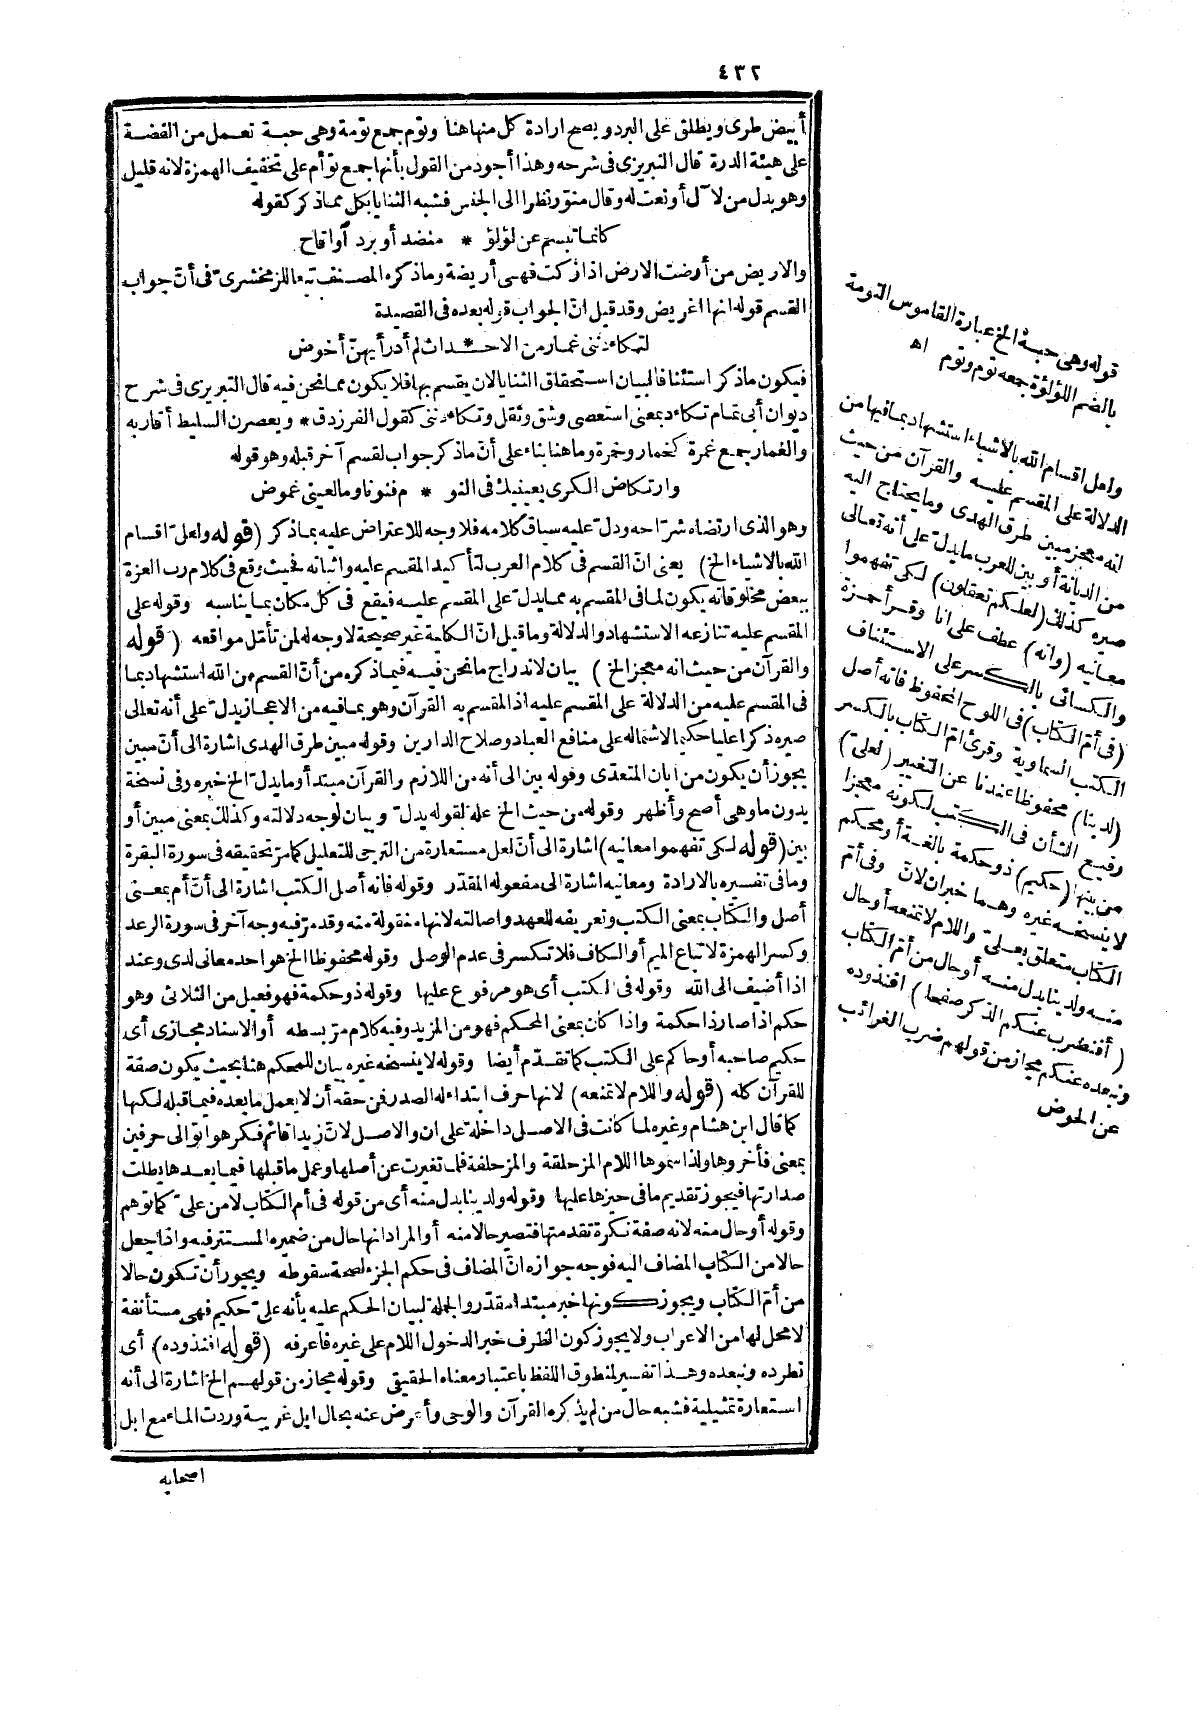 ٤٣٢
أبيض طرى ويطلق على البرد ويصح ارادة كل منها هنا وتوم جمع تومة وهى حبة تعمل من الفضة
على هيئة الدرة قال التبريزى فى شرحه وهذا أجود من القول بأنها جمع توأم على تخفيف الهمزة لانه قليل
وهو بدل من لآل أو نعت له وقال منوّر نظرا الى الجنس فشبه الثنايا بكل مما ذكر كقوله
كانما تبسم عن لؤلؤ * منضد أو برد أو اقاح
والاريض من أرضت الارض اذا زكت فهى أريضة وما ذكره المصنف تبعا للزمخشرى فى أنّ جواب
القسم قوله انها اغريض وقد قيل انّ الجواب قوله بعده فى القصيدة
لتكاءدنى غمار من الاحداث لم أدر أيهنّ أخوض
فيكون ما ذكر استئنافا لبيان استحقاق الثنايا لان يقسم بها فلا يكون مما نحن فيه قال التبريزى فى شرح
ديوان أبى تمام تكاءد بمعنى استعصى وشق وثقل وتكاءدنى كقول الفرزدق * ويعصرن السليط أقاربه
والغمار جمع غمرة كخمار وخمرة وما هنا بناء على أنّ ما ذكر جواب لقسم آخر قبله وهو قوله
وارتكاض الكرى بعينيك فى النو * م فنونا وما لعينى غموض
وهو الذى ارتضاه شرّاحه ودلّ عليه سباق كلامه فلا وجه للاعتراض عليه بما ذكر (قوله ولعلّ اقسام
الله بالاشياء الخ) يعنى انّ القسم فى كلام العرب لتأكيد المقسم عليه واثباته فحيث وقع فى كلام رب العزة
ببعض مخلوقاته يكون لما فى المقسم به مما يدلّ على المقسم عليه فيقع فى كل مكان بما يناسبه وقوله على
المقسم عليه تنازعه الاستشهاد والدلالة وما قيل انّ الكلية غير صحيحة لا وجه له لمن تأمّل مواقعه (قوله
والقرآن من حيث انه معجز الخ) بيان لاندراج ما نحن فيه فيما ذكره من أنّ القسم من الله استشهاد بما
فى المقسم عليه من الدلالة على المقسم عليه اذ المقسم به القرآن وهو بما فيه من الاعجاز يدلّ على أنه تعالى
صيره ذكرا عليا حكيما لاشتماله على منافع العباد وصلاح الدارين وقوله مبين طرق الهدى اشارة الى أنّ مبين
يجوز أن يكون من ابان المتعدّى وقوله بين الى أنه من اللازم والقرآن مبتدأ وما يدلّ الخ خبره وفى نسخة
بدون ما وهى أصح وأظهر وقوله من حيث الخ علة لقوله يدلّ وبيان لوجه دلالته وكذلك بمعنى مبين أو
بين (قوله لكى تفهموا معانيه) اشارة الى أنّ لعل مستعارة من الترجى للتعليل كما مرّ تحقيقه فى سورة البقرة
وما فى تفسيره بالارادة ومعانيه اشارة الى مفعوله المقدّر وقوله فانه أصل الكتب اشارة الى أنّ أم بمعنى
أصل والكتاب بمعنى الكتب وتعريفه للعهد واصالته لانها منقولة منه وقد مرّ فيه وجه آخر فى سورة الرعد
وكسر الهمزة لاتباع الميم أو الكاف فلا تكسر فى عدم الوصل وقوله محفوظا الخ هو احد معانى لدى وعند
اذا أضيف الى الله وقوله فى الكتب أى هو مرفوع عليها وقوله ذو حكمة فهو فعيل من الثلاثىّ وهو
حكم اذا صار ذا حكمة واذا كان بمعنى المحكم فهو من المزيد وفيه كلام مرّ بسطه أو الاسناد مجازى أى
حكيم صاحبه أو حاكم على الكتب كما تقدّم أيضا وقوله لا ينسخه غيره بيان للمحكم هنا بحيث يكون صفة
للقرآن كله (قوله واللام لا تمنعه) لانها حرف ابتداء له الصدر فمن حقه أن لا يعمل ما بعده فيما قبله لكنها
كما قال ابن هشام وغيره لما كانت فى الاصل داخلة على ان والاصل لانّ زيدا قائم فكرهوا توالى حرفين
بمعنى فأخروها ولذا سموها اللام المزحلقة والمزحلفة فلما تغيرت عن أصلها وعمل ما قبلها فيما بعدها بطلت
صدارتها فيجوز تقديم ما فى حيزها عليها وقوله ولدينا بدل منه أى من قوله فى أم الكتاب لا من علىّ كما توهم
وقوله أو حال منه لانه صفة نكرة تقدمتها فتصير حالا منه أو المراد انها حال من ضميره المستتر فيه واذا جعل
حالا من الكتاب المضاف اليه فوجه جوازه انّ المضاف فى حكم الجزء لصحة سقوطه ويجوز أن تكون حالا
من أمّ الكتاب ويجوز كونها خبر مبتدا مقدّر والجملة لبيان الحكم عليه بأنه علىّ حكيم فهى مستأنفة
لا محل لها من الاعراب ولا يجوز كون الظرف خبرا لدخول اللام على غيره فاعرفه (قوله افنذوده) أى
نطرده ونبعده وهذا تفسير لمنطوق اللفظ باعتبار معناه الحقيقى وقوله مجاز من قولهم الخ اشارة الى أنه
استعارة تمثيلية فشبه حال من لم يذكره القرآن والوحى وأعرض عنه بحال ابل غريبة وردت الماء مع ابل
اصحابه
قوله وهى حبة الخ عبارة القاموس التومة
بالضم اللؤلؤة جمعه توم وتوم اه
ولعل اقسام الله بالاشياء استشهاد بما فيها من
الدلالة على المقسم عليه والقرآن من حيث
انه معجز مبين طرق الهدى وما يحتاج اليه
من الديانة أو بين للعرب ما يدلّ على أنه تعالى
صيره كذلك (لعلكم تعقلون) لكى تفهموا
معانيه (وانه) عطف على انا وقرأ حمزة
والكسائى بالكسر على الاستئناف
(فى أمّ الكتاب) فى اللوح المحفوظ فانه أصل
الكتب السماوية وقرئ امّ الكتاب بالكسر
(لدينا) محفوظا عندنا عن التغيير (لعلىّ)
رفيع الشأن فى الكتب لكونه معجزا
من بينها (حكيم) ذو حكمة بالغة أو محكم
لا ينسخه غيره وهما خبران لانّ وفى أمّ
الكتاب متعلق بعلىّ واللام لا تمنعه أو حال
منه ولدينا بدل منه أو حال من أمّ الكتاب
(أفنضرب عنكم الذكر صفحا) افنذوده
ونبعده عنكم مجاز من قولهم ضرب الغرائب
عن الحوض